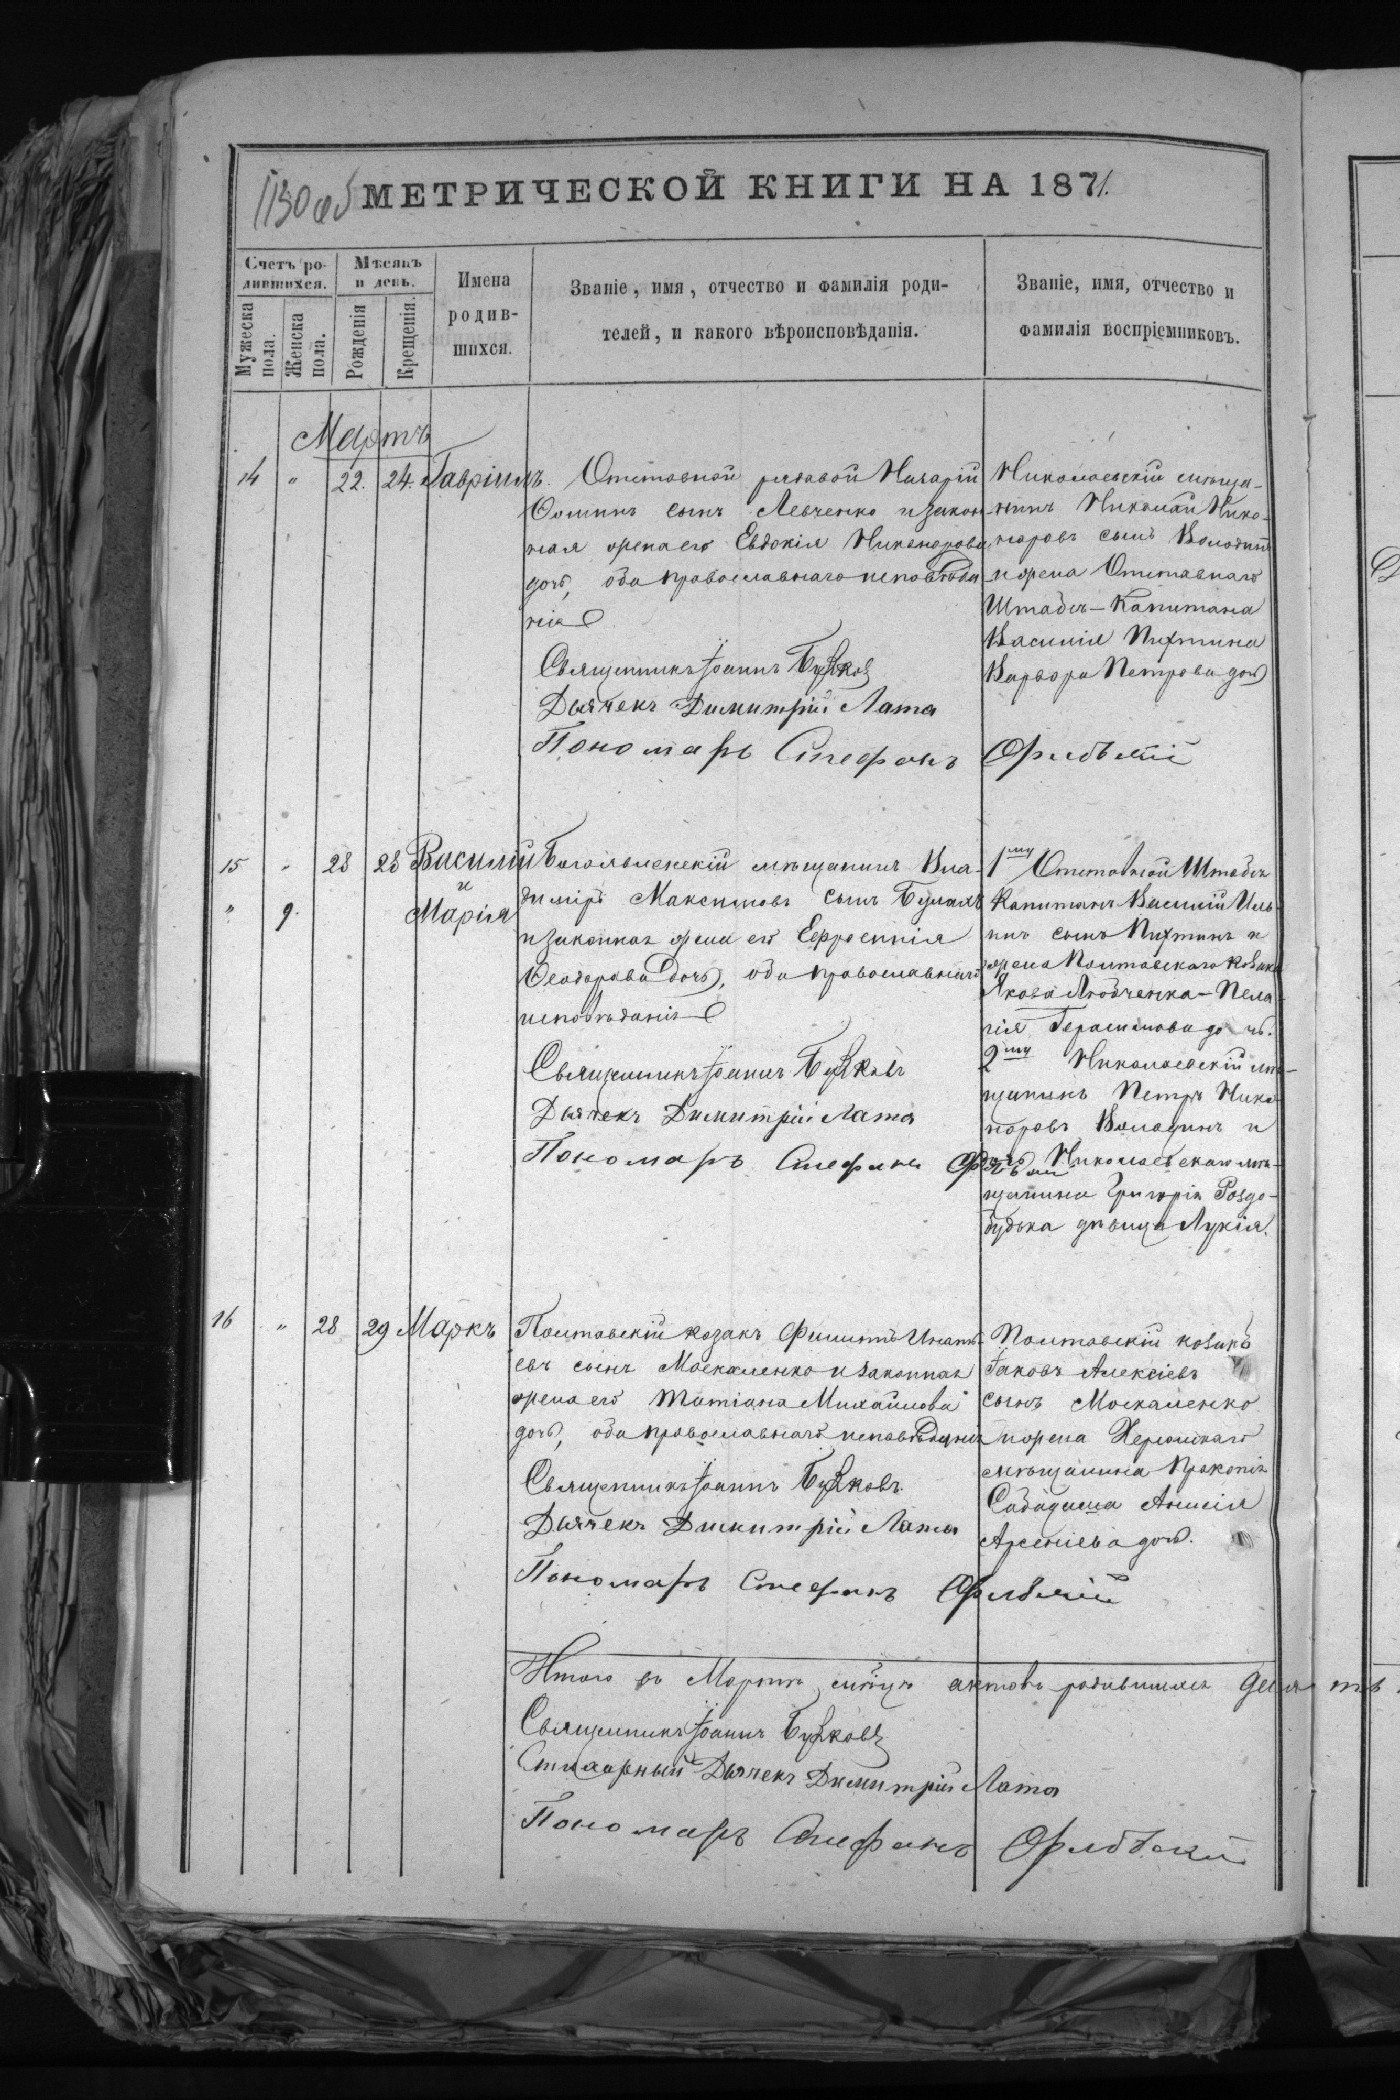 1130 об
МЕТРИЧЕСКОЙ КНИГИ НА 1871.
Счетъ ро-
дившихся.
Мѣсяцъ
и день.
Имена
родив-
шихся.
Званіе, имя, отчество и фамилія роди-
телей, и какого вѣроисповѣданія.
Званіе, имя, отчество и
фамилія воспріемниковъ.
Мужеска
пола.
Женска
пола.
Рожденія
Крещенія.
Мартъ
14 " 22. 24. Гавріилъ.
Отставной рядовой Назарій
Ѳоминъ сынъ Левченко и закон-
ная жена его Евдокія Никанорова
дочь, оба православнаго исповѣда-
нія
Священникъ Іоаннъ
Дьячекъ Димитрій Лата
Пономарь Стефанъ
Николаевскій мѣща-
нинъ Николай Ника-
норовъ сынъ Володинъ
и жена Отставнаго
Штабсъ-Капитана
Василія Пихтина
Варвара Петрова дочь
15 " 28 28 Василій
и
" 9. Марія
Богоявленскій мѣщанинъ Вла-
диміръ Максимовъ сынъ
и законная жена его Евфросинія
Ѳеодорова дочь, оба православнаго
исповѣданія
Священникъ Іоаннъ
Дьячекъ Димитрій Лата
Пономарь Стефанъ
1му Отставной Штабсъ
Капитанъ Василій Иль-
инъ сынъ Пихтинъ и
жена Полтавскаго козака
Якова Любченка - Пела-
гія Герасимова дочь.
2му Николаевскій мѣ-
щанинъ Петръ Ника-
норовъ Володинъ и
дочь Николаевскаго мѣ-
щанина Григорія Роздо-
будька дѣвица Лукія.
16 " 28 29 Маркъ
Полтавскій козакъ Филиппъ Игнать-
евъ сынъ Москаленко и законная
жена его Татіана Михайлова
дочь, оба православнаго исповѣданія
Священникъ Іоаннъ
Дьячекъ Димитрій Лата
Пономарь Стефанъ
Полтавскій козакъ
Іаковъ Алексіевъ
сынъ Москаленко
и жена Херсонскаго
мѣщанина Прокопія
Сабадаша Анисія
Арсеніева дочь.
Итого въ Мартѣ мѣсяцѣ актовъ родившихся девять
Священникъ Іоаннъ
Стихарный Дьячекъ Димитрій Лата
Пономарь Стефанъ